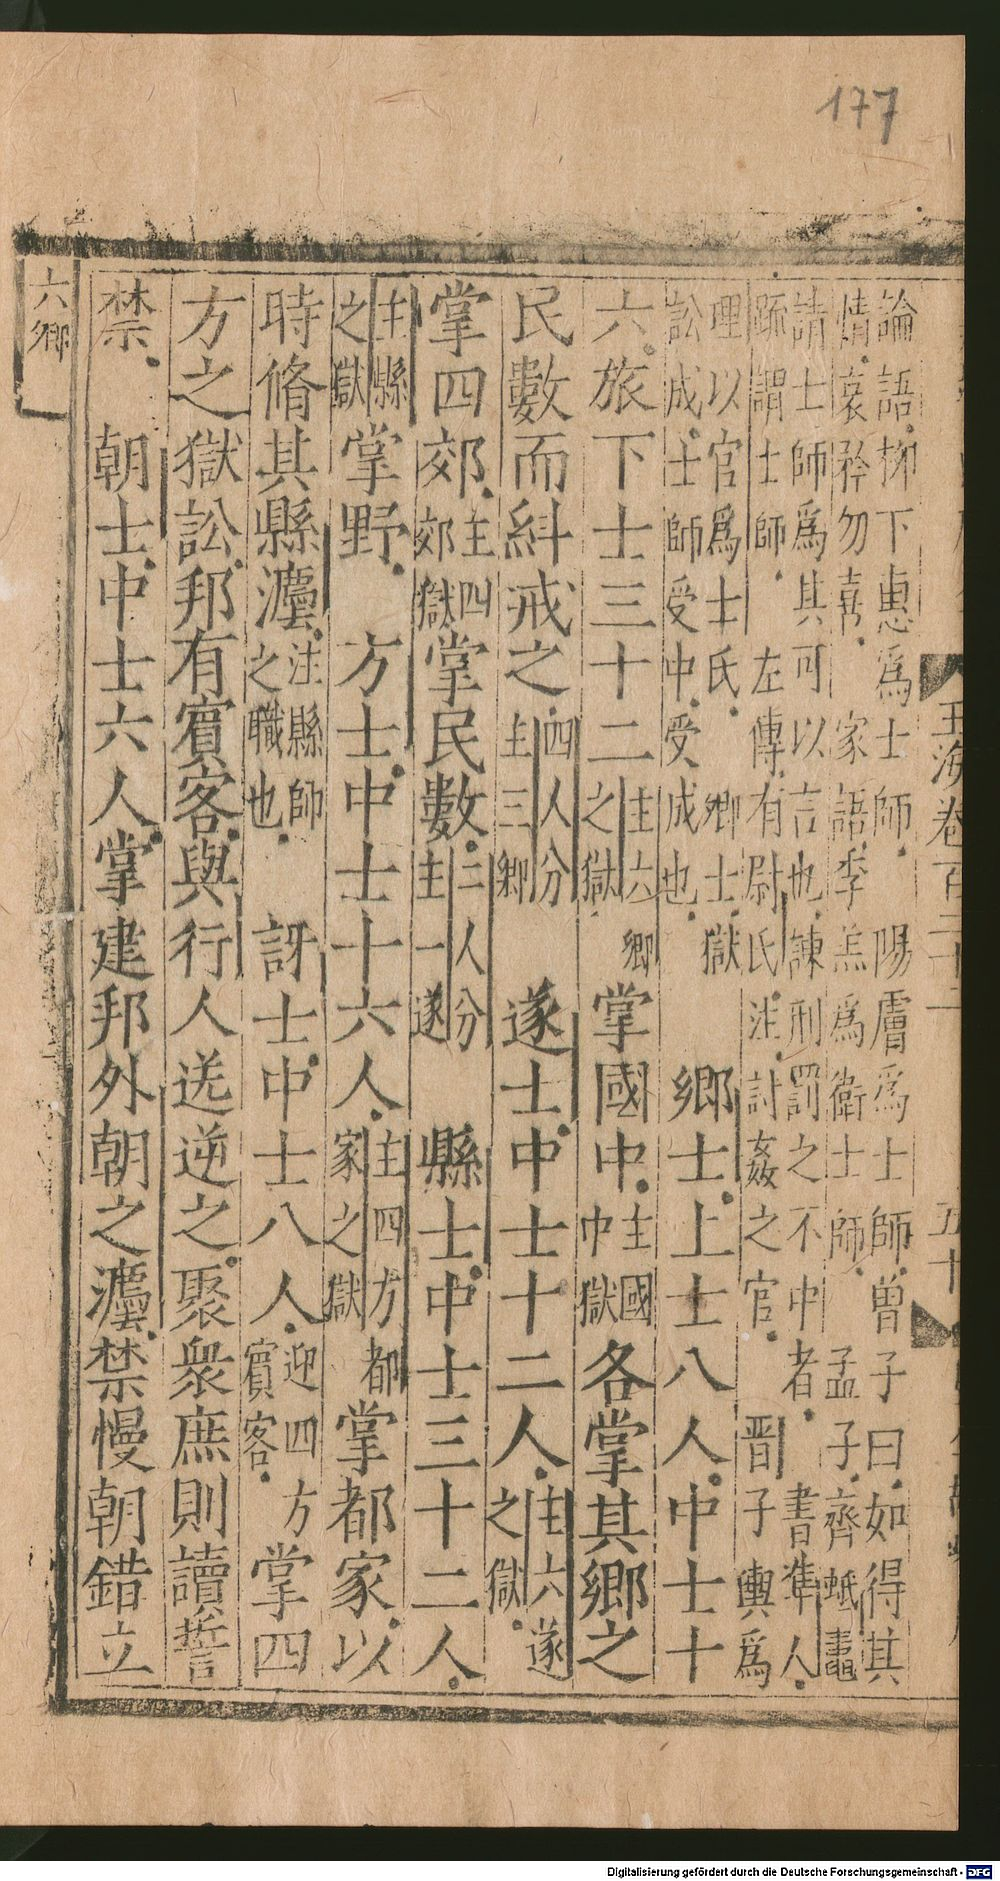 177
論語柳下惠爲士師陽膚爲士師曾子曰如得其
情哀矜勿喜家語季羔爲衛士師孟子齊蚳鼃
請士師爲其可以言也諫刑罰之不中者書準人
䟽謂士師左傳有尉氏注討姦之官晋子輿爲
理以官爲士氏鄉士獄
訟成士師受中受成也鄉士上士八人中士十
六旅下士三十二主六鄉之獄掌國中主國中獄各掌其鄉之
民數而糾戒之四人分主三鄉遂士中士十二人主六遂之獄
掌四郊主四郊獄掌民數二人分主一遂縣士中士三十二人
主縣之獄掌野方士中士十六人主四方都家之獄掌都家以
時脩其縣灋注縣師之職也訝士中士八人迎四方賓客掌四
方之獄訟邦有賓客與行人送逆之聚衆庶則讀誓
禁朝士中士六人掌建邦外朝之灋禁慢朝錯立
六鄉
玉海卷百二十二
五十
Digitalisierung gefördert durch die Deutsche Forschungsgemeinschaft - DFG